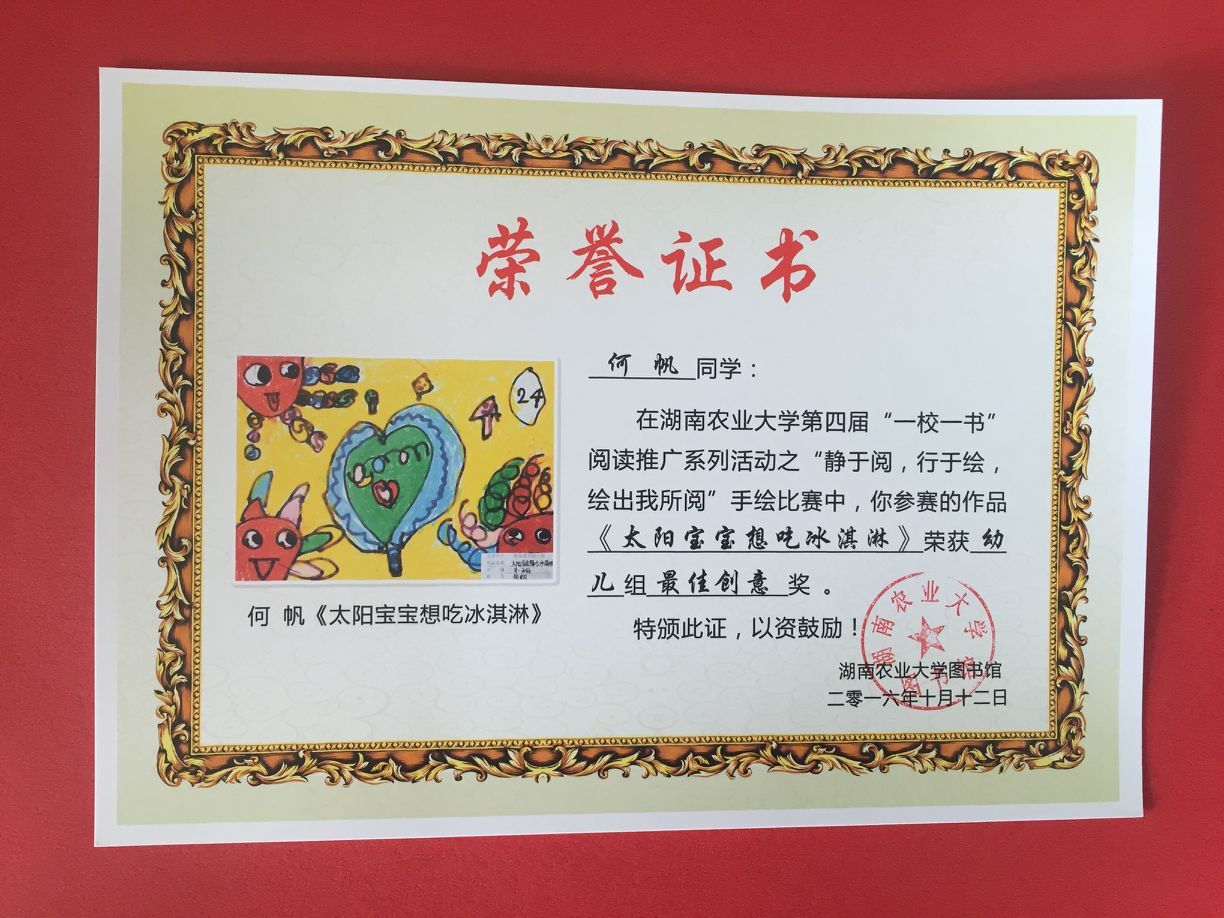 荣誉证书
24
何 帆《太阳宝宝想吃冰淇淋》
何 帆 同学：
在湖南农业大学第四届“一校一书”
阅读推广系列活动之“静于阅，行于绘，
绘出我所阅”手绘比赛中，你参赛的作品
《太阳宝宝想吃冰淇淋》荣获 幼
儿 组 最佳创意 奖 。
特颁此证，以资鼓励！
湖南农业大学图书馆
二零一六年十月十二日
湖南农业大学
图书馆